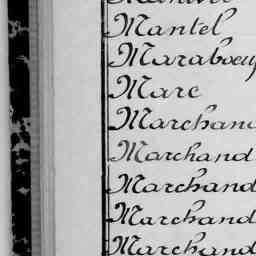 Mantel
Maraboeuf
Marc
Marchand
Marchand
Marchand
Marchand
Marchand